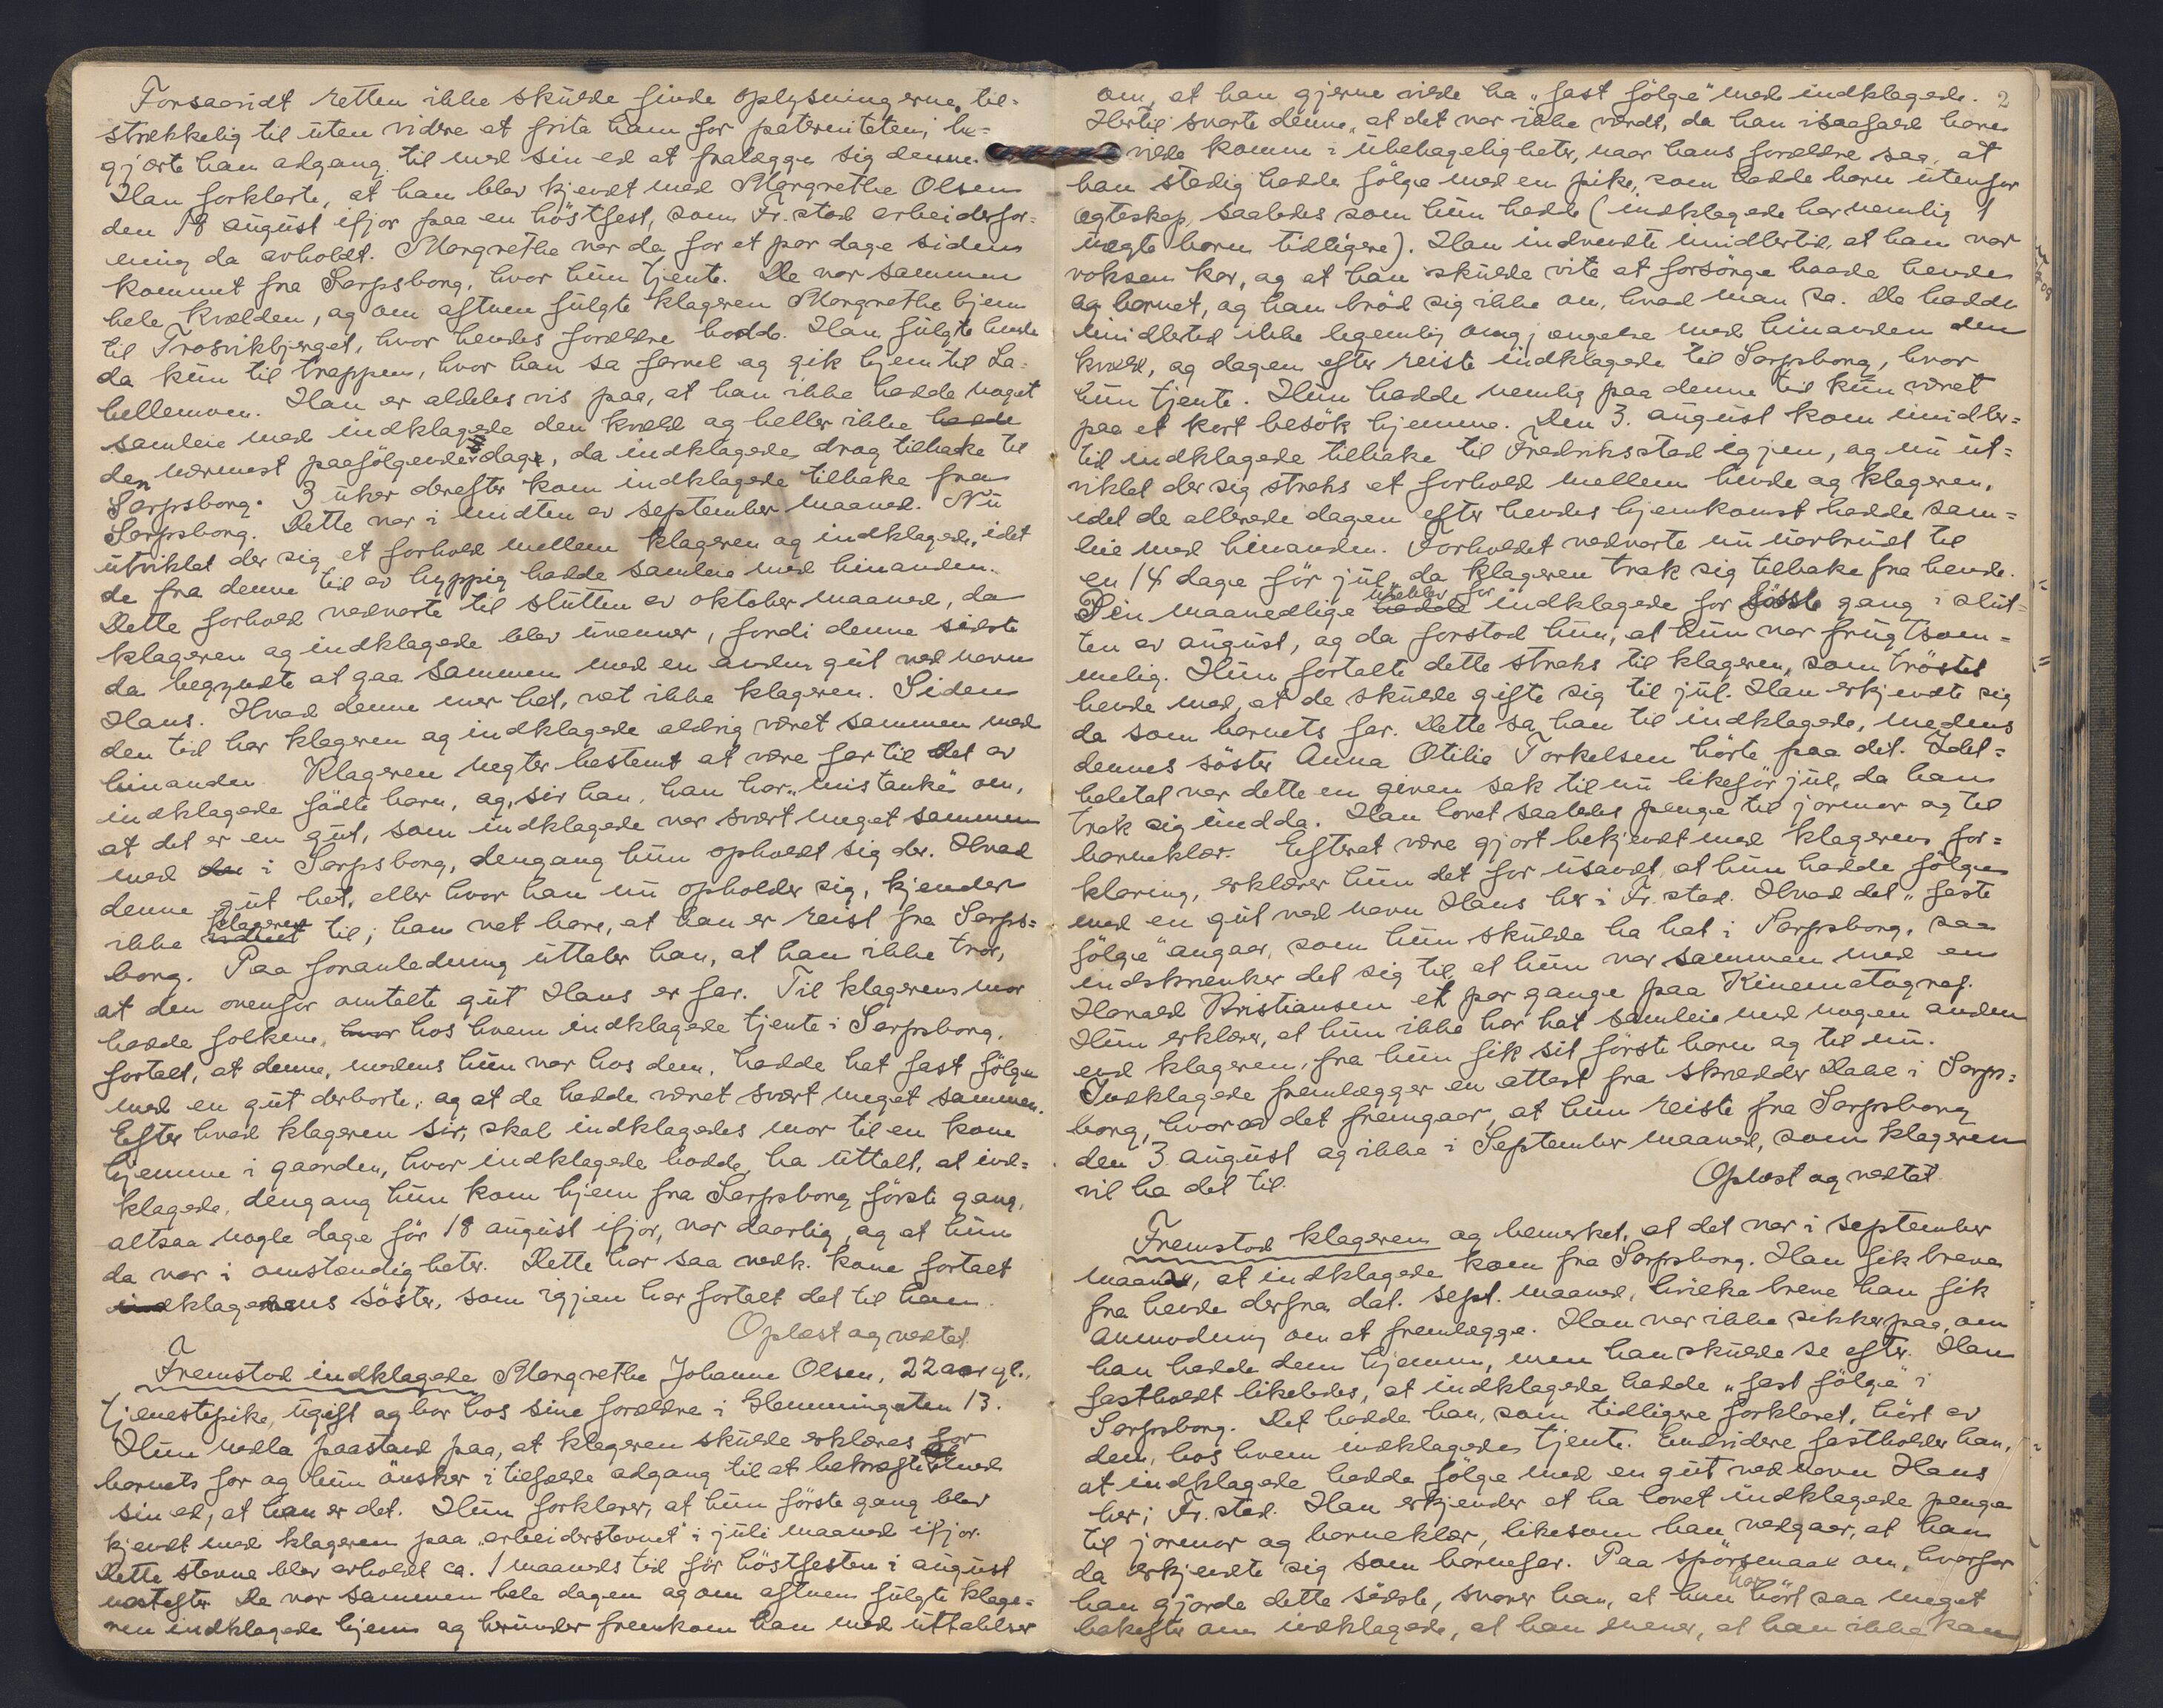 Forsaavidt retten ikke skulde finde oplysningerne til-
strækkelig til uten videre at frita ham for paterniteten, be-
gjærte han adgang til med sin ed at fralægge sig denne.
Han forklarte, at han blev kjendt med Margrethe Olsen
den 18 august ifjor paa en høstfest, som Fr.stad arbeiderfor-
ening da avholdt. Margrethe var da for et par dage siden
kommet fra Sarpsborg, hvor hun tjente. De var sammen
hele kvælden, og om aftnen fulgte klageren Margrethe hjem
til Trosvikbjerget, hvor hendes forældre bodde. Han fulgte hende
da kun til trappen, hvor han sa farvel og gik hjem til La-
hellemoen. Han er aldeles vis paa, at han ikke hadde noget
samleie med indklagede den kvæld og heller ikke hadde
den nærmest paafölgende dag, da indklagede drog tilbake til
Sarpsborg. 3 uker derefter kom indklagede tilbake fra
Sarpsborg. Dette var i midten av september maaned. Nu
utviklet der sig et forhold mellem klageren og indklagede, idet
de fra denne tid av hyppig hadde samleie med hinanden.
Dette forhold vedvarte til slutten av oktober maaned, da
klageren og indklagede blev uvenner, fordi denne sidste
da begyndte at gaa sammen med en anden gut ved navn
Hans. Hvad denne mer het, vet ikke klageren. Siden
den tid har klageren og indklagede aldrig været sammen med
hinanden. Klageren negter bestemt at være far til det av
indklagede födte barn, og, sir han, han har „mistanke“ om,
at det er en gut, som indklagede var svært meget sammen
med den i Sarpsborg, dengang hun opholdt sig der. Hvad
denne gut het, eller hvor han nu opholder sig, kjender
ikke klageren til; han vet bare, at han er reist fra Sarps-
borg. Paa foranledning uttaler han, at han ikke tror,
at den ovenfor omtalte gut Hans er far. Til klagerens mor
hadde folkene, hvor hos hvem indklagede tjente i Sarpsborg,
fortalt, at denne, medens hun var hos dem, hadde hat fast fölge
med en gut derborte, og at de hadde været svært meget sammen.
Efter hvad klageren sir, skal indklagedes mor til en kone
hjemme i gaarden, hvor indklagede bodde, ha uttalt, at ind-
klagede, dengang hun kom hjem fra Sarpsborg förste gang,
altsaa nogle dage för 18 august ifjor, var daarlig, og at hun
da var i omstændigheter. Dette har saa vedk. kone fortalt
klagerens söster, som igjen har fortalt det til ham.
Oplæst og vedtat.
Fremstod indklagede Margrethe Johanne Olsen, 22 aar gl.,
tjenestepike, ugift og bor hos sine forældre i Glemmingaten 13.
Hun nedla paastand paa, at klageren skulde erklæres for
barnets far og hun önsker i tilfælde adgang til at bekræfte med
sin ed, at han er det. Hun forklarer, at hun förste gang blev
kjendt med klageren paa „arbeiderstevnet“ i juli maaned ifjor.
Dette stevne blev avholdt ca. 1 maaneds tid för höstfesten i august
næstefter. De var sammen hele dagen og om aftnen fulgte klage-
ren indklagede hjem og herunder fremkom han med uttalelser
2
om, at han gjerne vilde ha „fast fölge“ med indklagede.
Hertil svarte denne, at det var ikke værdt, da han isaafald bare
vilde komme i ubehageligheter, naar hans forældre saa, at
han stadig hadde fölge med en pike, som hadde barn utenfor
egteskap, saaledes som hun hadde (indklagede har nemlig 1
uegte barn tidligere). Han indvendte imidlertid, at han var
voksen kar, og at han skulde vite at forsörge baade hende
og barnet, og han bröd sig ikke om, hvad man sa. De hadde
imidlertid ikke legemlig omgjængelse med hinanden den
kvæld, og dagen efter reiste indklagede til Sarpsborg, hvor
hun tjente. Hun hadde nemlig paa denne tid kun været
paa et kort besök hjemme. Den 3. august kom imidler-
tid indklagede tilbake til Fredriksstad igjen, og nu ut-
viklet der sig straks et forhold mellem hende og klageren,
idet de allerede dagen efter hendes hjemkomst hadde sam-
leie med hinanden. Forholdet vedvarte nu uavbrudt til
en 14 dage för jul, da klageren trak sig tilbake fra hende.
Den maanedlige uteblev for indklagede for förste gang i slut-
ten av august, og da forstod hun, at hun var frugtsom-
melig. Hun fortalte dette straks til klageren, som tröstet
hende med, at de skulde gifte sig til jul. Han erkjendte sig
da som barnets far. Dette sa han til indklagede, medens
dennes söster Anna Otilie Torkelsen hörte paa det. Idet-
heletat var dette en given sak til nu likeför jul, da han
trak sig undda. Han lovet saaledes penge til jormor og til
barneklær. Efterat være gjort bekjendt med klagerens for-
klaring, erklærer hun det for usandt, at hun hadde fölge
med en gut ved navn Hans her i Fr.stad. Hvad det „faste
fölge“ angaar, som hun skulde ha hat i Sarpsborg, saa
indskrænker det sig til at hun var sammen med en
Harald Kristiansen et par gange paa Kinematograf.
Hun erklærer, at hun ikke har hat samleie med nogen anden
end klageren, fra hun fik sit förste barn og til nu.
Indklagede fremlægger en attest fra skrædder Daae i Sarps-
borg, hvorav det fremgaar, at hun reiste fra Sarpsborg
den 3. august og ikke i September maaned, som klageren
vil ha det til.
Oplæst og vedtat.
Fremstod klageren og bemerket, at det var i september
maaned, at indklagede kom fra Sarpsborg. Han fik breve
fra hende derfra dat. sept. maaned, hvilke breve han fik
anmodning om at fremlægge. Han var ikke sikker paa, om
han hadde dem hjemme, men han skulde se efter. Han
fastholdt likeledes, at indklagede hadde „fast fölge“ i
Sarpsborg. Det hadde han, som tidligere forklaret, hört av
dem, hos hvem indklagede tjente. Endvidere fastholder han,
at indklagede hadde fölge med en gut ved navn Hans
her i Fr.stad. Han erkjender at ha lovet indklagede penge
til jormor og barneklær, likesom han vedgaar, at han
da erkjendte sig som barnefar. Paa spörsmaal om, hvorfor
han gjorde dette sidste, svarer han, at han har hört saa meget
bakefter om indklagede, at han mener, at han ikke kan